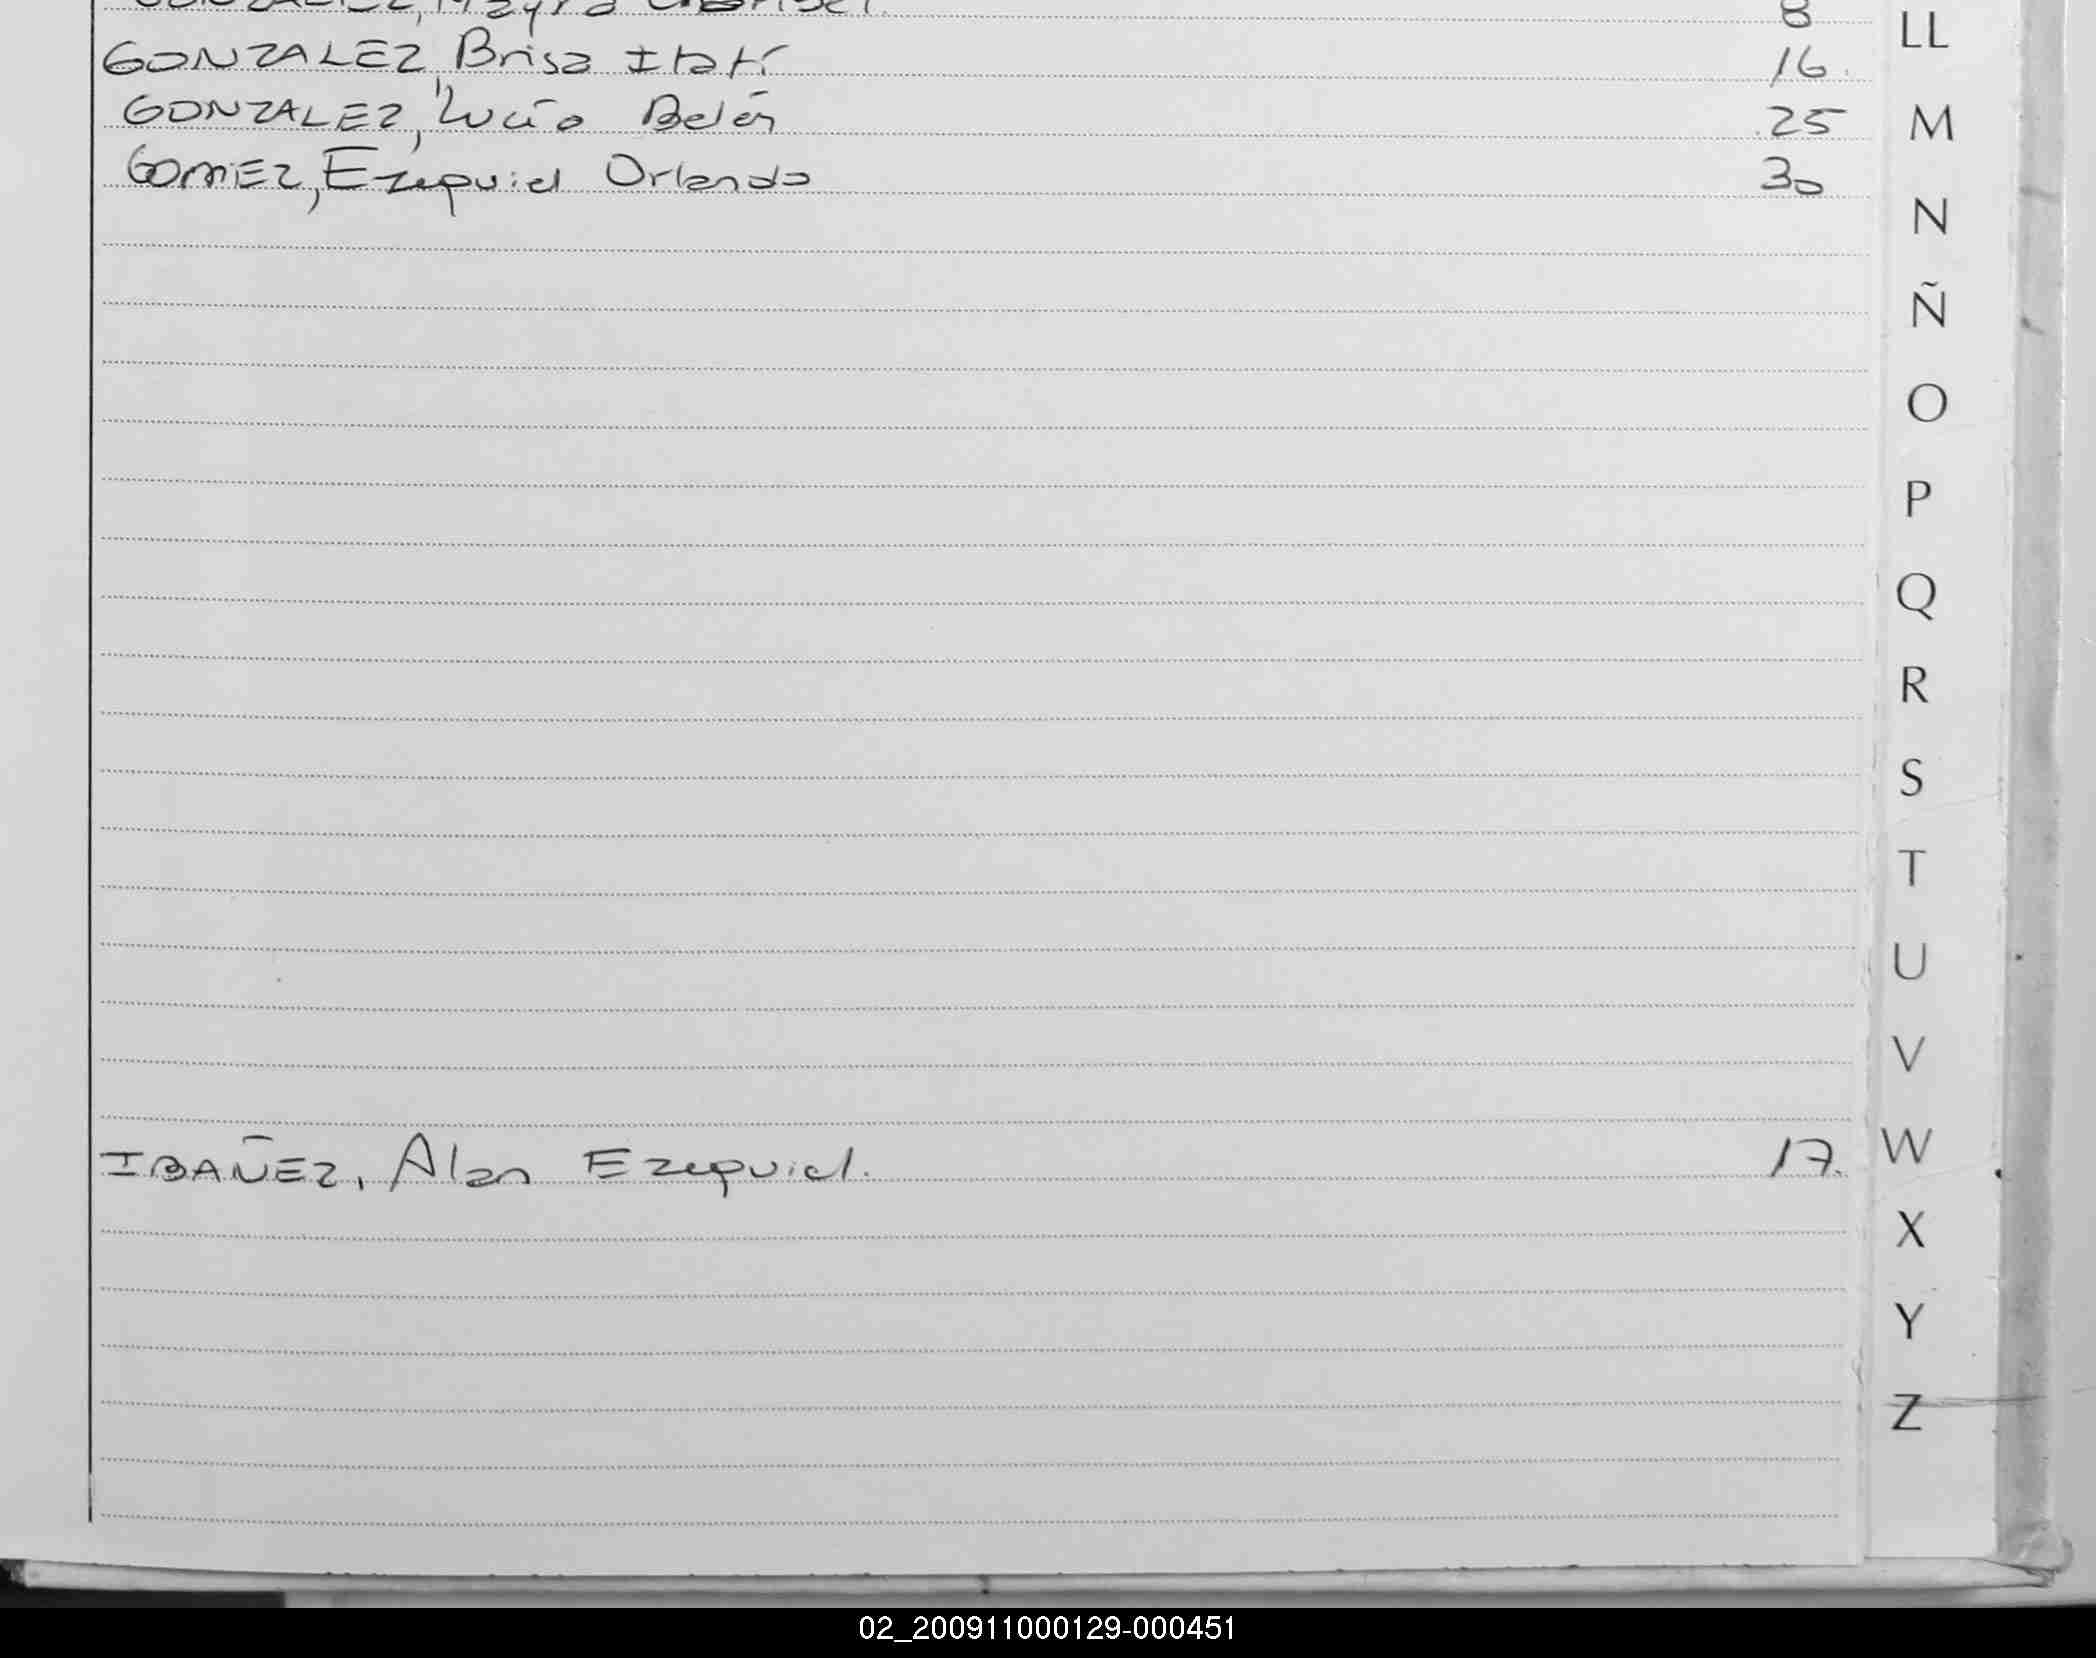 GONZALEZ, Mayra 8
LL
GONZALEZ, Brisa Itatí 16.
GONZALEZ, Lucía Belén 25
M
GOMEZ, Ezequiel Orlando 30
N
Ñ
O
P
Q
R
S
T
U
V
IBAÑEZ, Alan Ezequiel. 17.
W
X
Y
Z
02_200911000129-000451